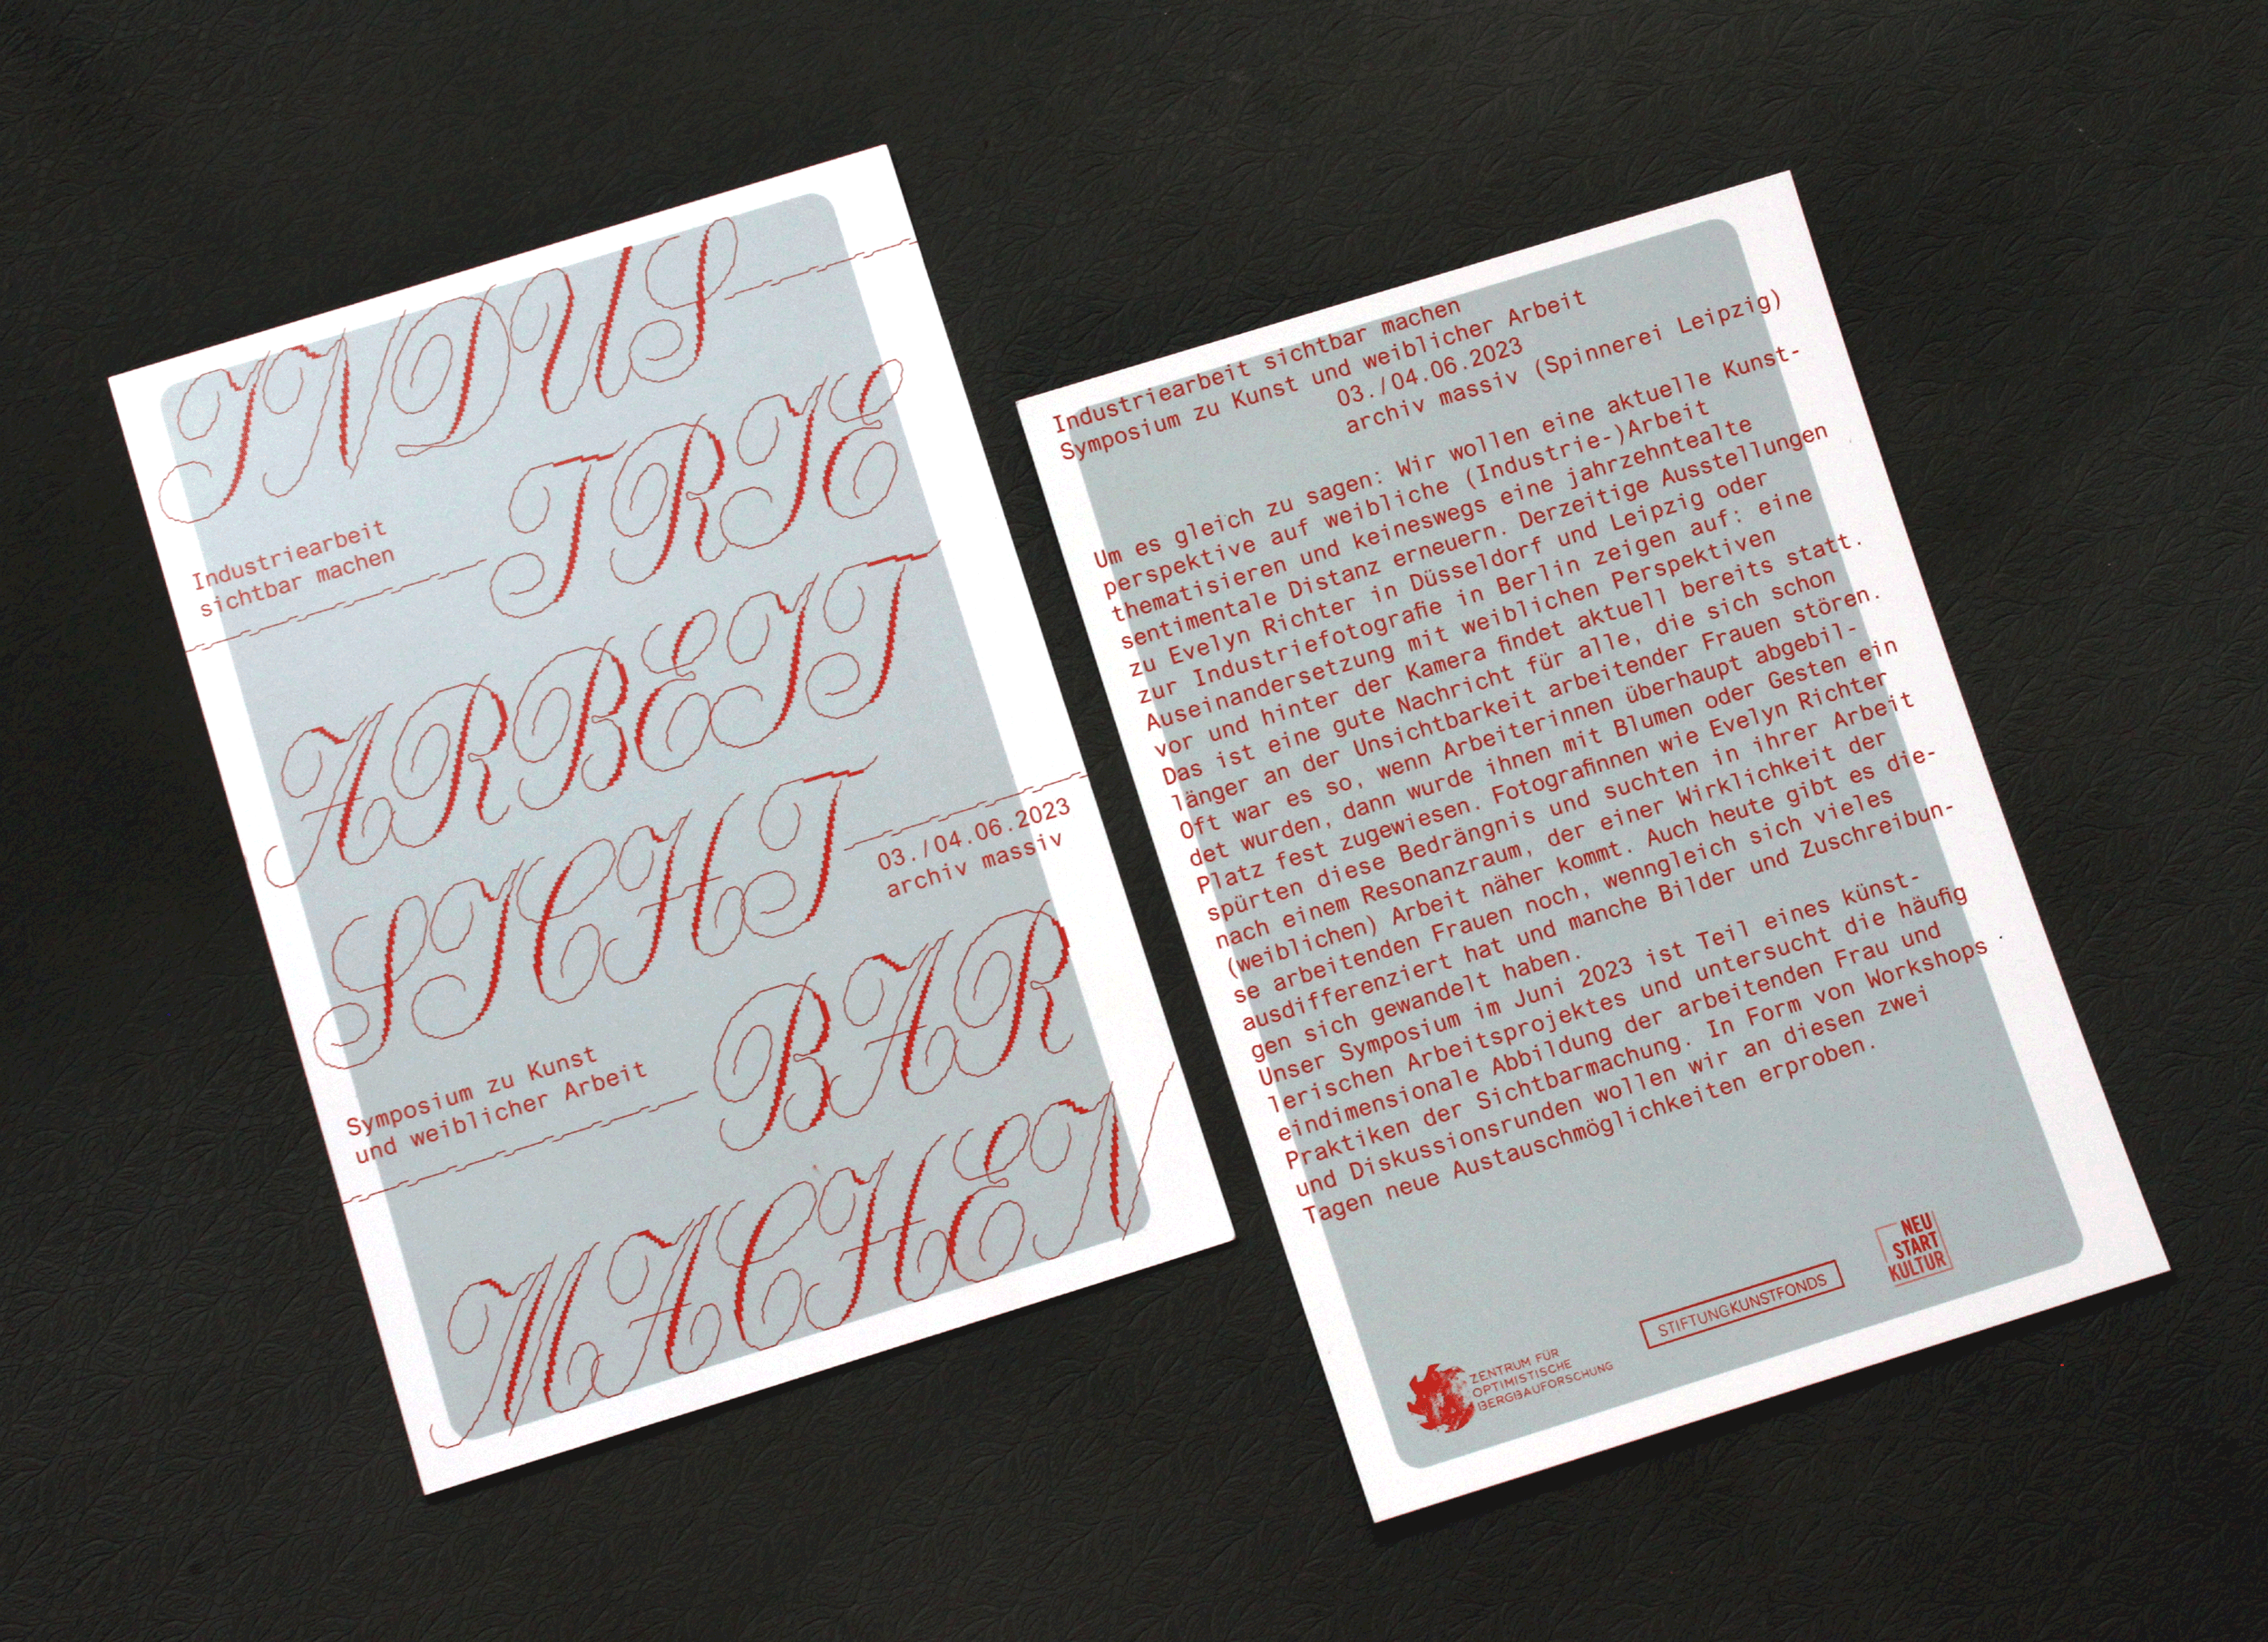 INDUS
TRIE
Industriearbeit
sichtbar machen
ARBEIT
SICHT
03./04.06.2023
archiv massiv
BAR
Symposium zu Kunst
und weiblicher Arbeit
MACHEN
Industriearbeit sichtbar machen
Symposium zu Kunst und weiblicher Arbeit
03./04.06.2023
archiv massiv (Spinnerei Leipzig)
Um es gleich zu sagen: Wir wollen eine aktuelle Kunst-
perspektive auf weibliche (Industrie-)Arbeit
thematisieren und keineswegs eine jahrzehntealte
sentimentale Distanz erneuern. Derzeitige Ausstellungen
zu Evelyn Richter in Düsseldorf und Leipzig oder
zur Industriefotografie in Berlin zeigen auf: eine
Auseinandersetzung mit weiblichen Perspektiven
vor und hinter der Kamera findet aktuell bereits statt.
Das ist eine gute Nachricht für alle, die sich schon
länger an der Unsichtbarkeit arbeitender Frauen stören.
Oft war es so, wenn Arbeiterinnen überhaupt abgebil-
det wurden, dann wurde ihnen mit Blumen oder Gesten ein
Platz fest zugewiesen. Fotografinnen wie Evelyn Richter
spürten diese Bedrängnis und suchten in ihrer Arbeit
nach einem Resonanzraum, der einer Wirklichkeit der
(weiblichen) Arbeit näher kommt. Auch heute gibt es die-
se arbeitenden Frauen noch, wenngleich sich vieles
ausdifferenziert hat und manche Bilder und Zuschreibun-
gen sich gewandelt haben.
Unser Symposium im Juni 2023 ist Teil eines künst-
lerischen Arbeitsprojektes und untersucht die häufig
eindimensionale Abbildung der arbeitenden Frau und
Praktiken der Sichtbarmachung. In Form von Workshops
und Diskussionsrunden wollen wir an diesen zwei
Tagen neue Austauschmöglichkeiten erproben.
ZENTRUM FÜR
OPTIMISTISCHE
BERGBAUFORSCHUNG
STIFTUNGKUNSTFONDS
NEU
START
KULTUR